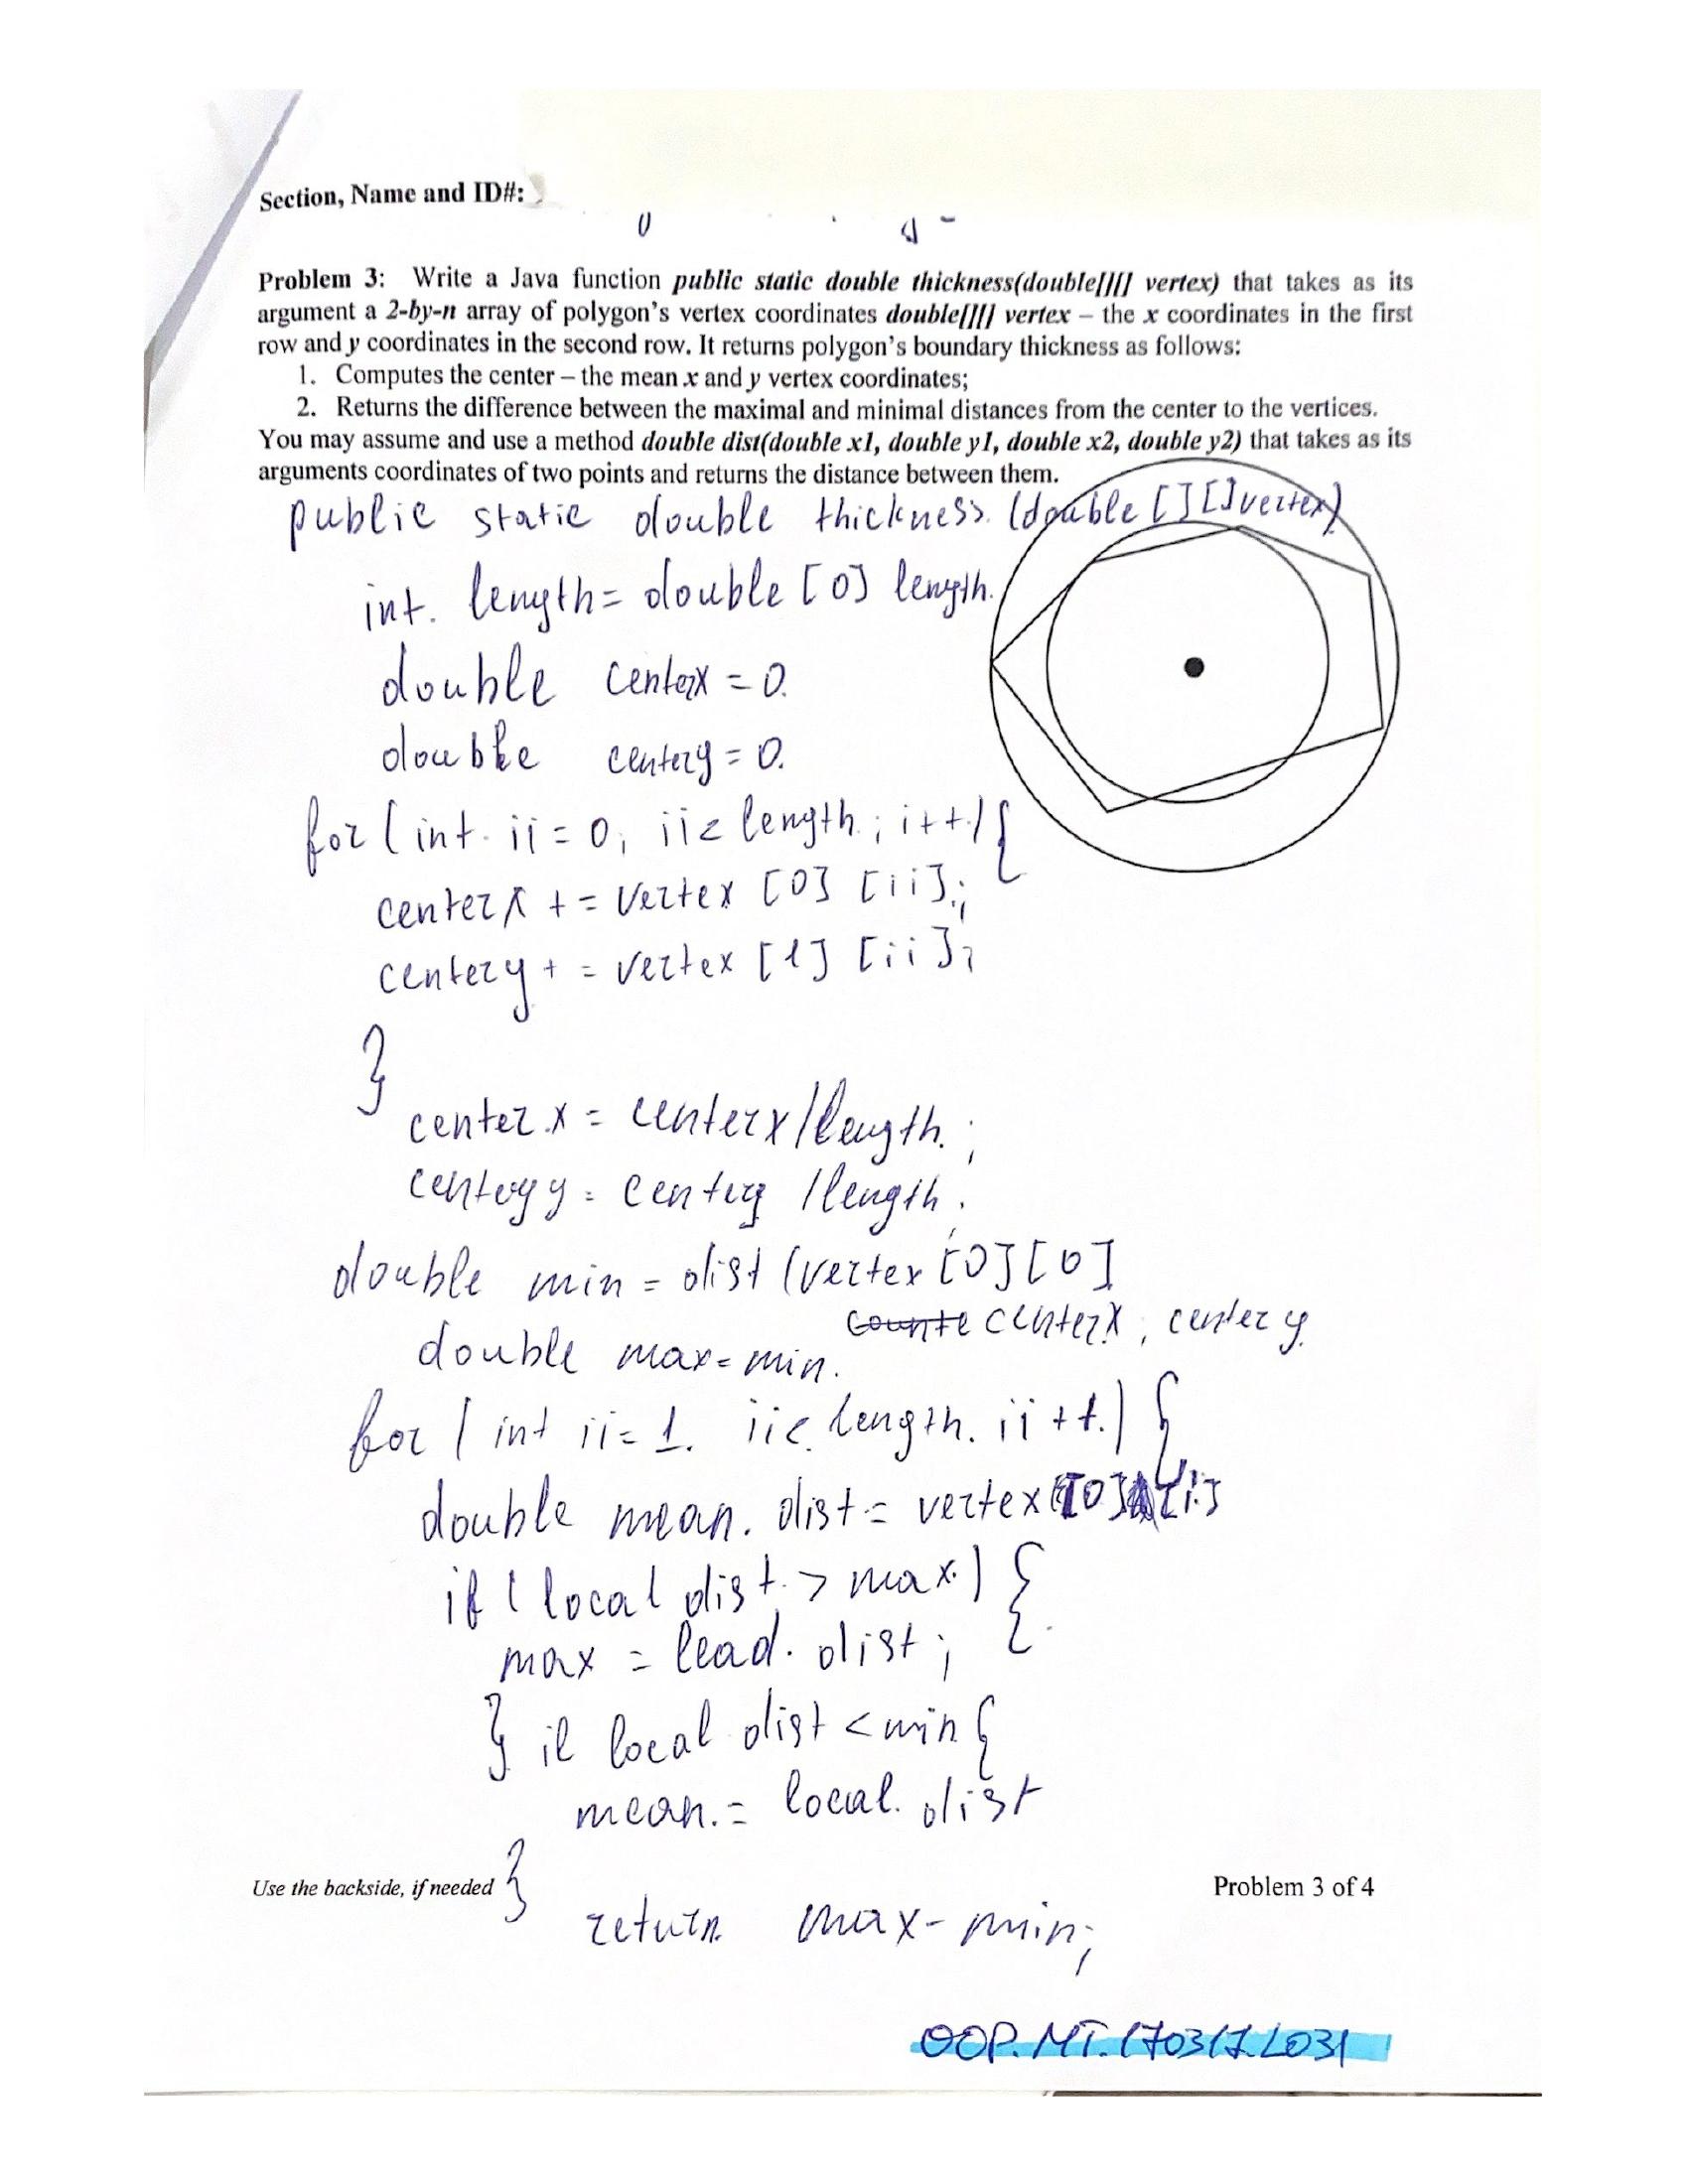 Section, Name and ID#:
Problem 3: Write a Java function public static double thickness(double[][] vertex) that takes as its
argument a 2-by-n array of polygon's vertex coordinates double[][] vertex – the x coordinates in the first
row and y coordinates in the second row. It returns polygon's boundary thickness as follows:
1. Computes the center – the mean x and y vertex coordinates;
2. Returns the difference between the maximal and minimal distances from the center to the vertices.
You may assume and use a method double dist(double x1, double y1, double x2, double y2) that takes as its
arguments coordinates of two points and returns the distance between them.
public static double thickness. (double [] [] vertex)
int. length = double [0] length.
double centerx = 0.
double centery = 0.
for ( int. ii = 0; ii < length. ; i++) {
centerx += vertex [0] [ii];
centery += vertex [1] [ii];
}
center.x = centerx / length. ;
centery y = centery / length.
double min = dist (vertex [0] [0]
centerx, center y.
double max = min.
for ( int ii = 1. ii < length. ii ++.) {
double mean. dist = vertex [0] [i]
if ( local dist. > max.) {
max = lead. dist ;
} il local dist < min {
mean. = local. dist
}
return max - min;
Use the backside, if needed
Problem 3 of 4
OOP.MT.170317.L031